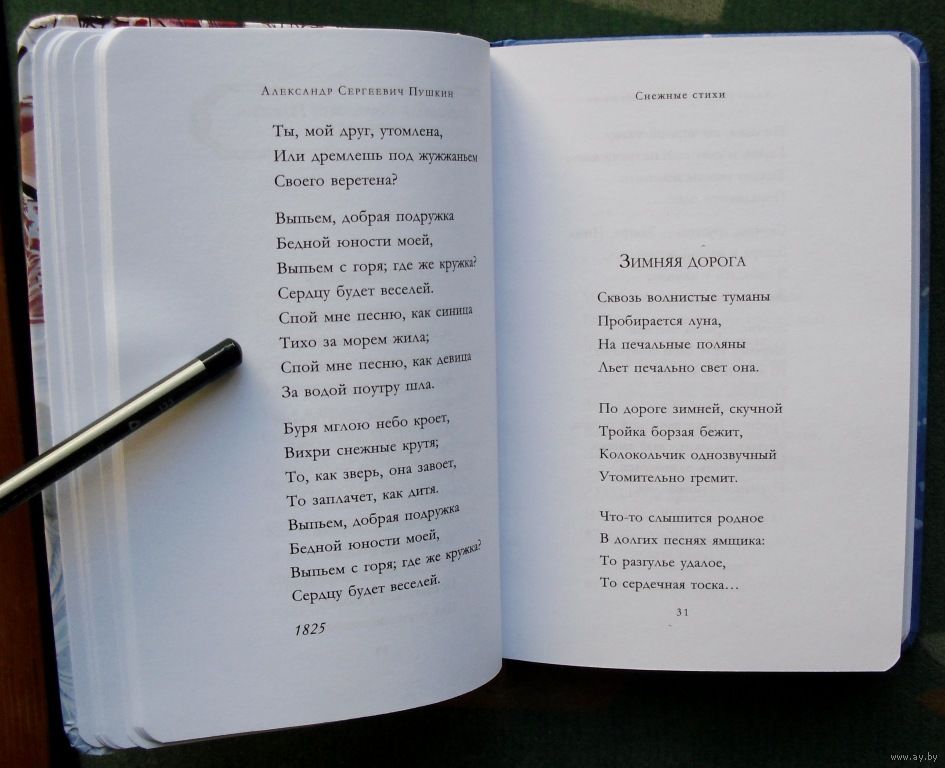 Александр Сергеевич Пушкин
Ты, мой друг, утомлена,
Или дремлешь под жужжаньем
Своего веретена?
Выпьем, добрая подружка
Бедной юности моей,
Выпьем с горя; где же кружка?
Сердцу будет веселей.
Спой мне песню, как синица
Тихо за морем жила;
Спой мне песню, как девица
За водой поутру шла.
Буря мглою небо кроет,
Вихри снежные крутя;
То, как зверь, она завоет,
То заплачет, как дитя.
Выпьем, добрая подружка
Бедной юности моей,
Выпьем с горя; где же кружка?
Сердцу будет веселей.
1825
Снежные стихи
Зимняя дорога
Сквозь волнистые туманы
Пробирается луна,
На печальные поляны
Льет печально свет она.
По дороге зимней, скучной
Тройка борзая бежит,
Колокольчик однозвучный
Утомительно гремит.
Что-то слышится родное
В долгих песнях ямщика:
То разгулье удалое,
То сердечная тоска...
31
www.ay.by